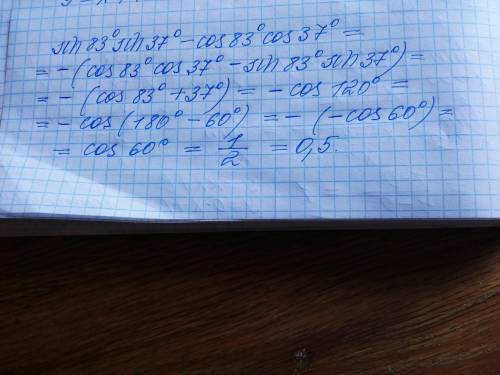 sin 83° sin 37° - cos 83° cos 37° =
= - (cos 83° cos 37° - sin 83° sin 37°) =
= - (cos 83° + 37°) = - cos 120° =
= - cos (180° - 60°) = - (- cos 60°) =
= cos 60° = 1/2 = 0,5.